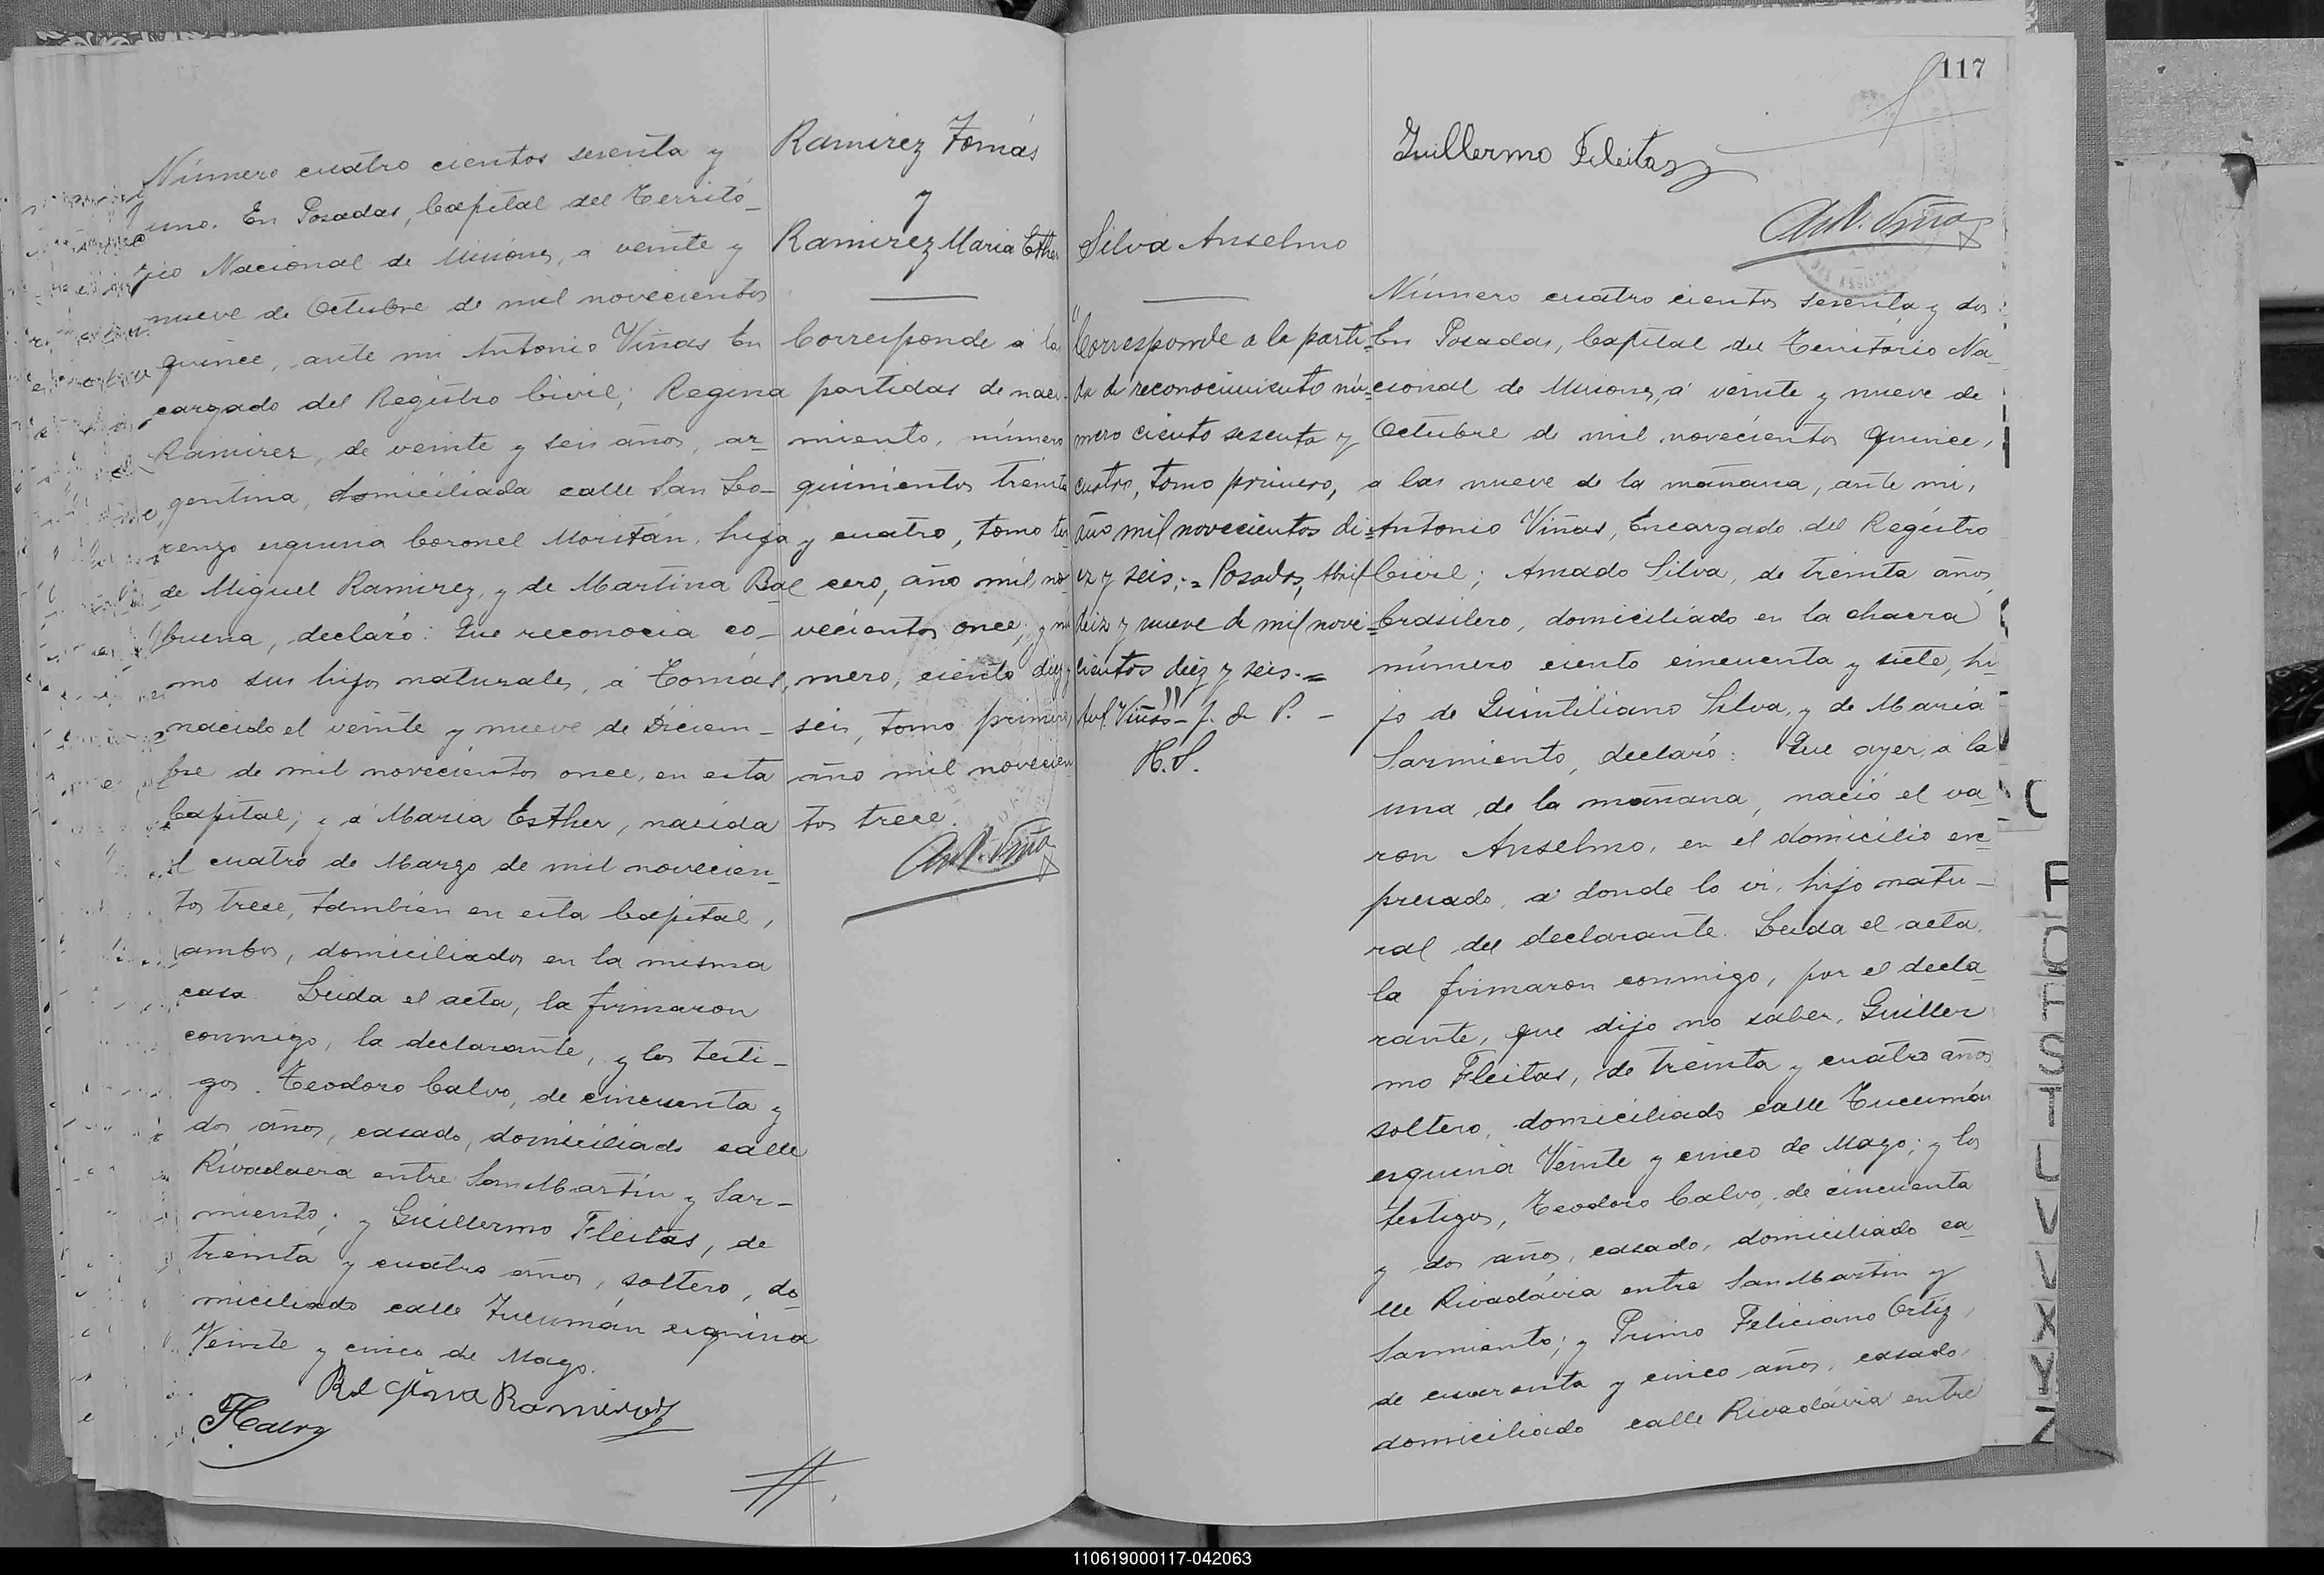 Número cuatro cientos sesenta y
uno. En Posadas, Capital del Territó-
rio Nacional de Misiones, a veinte y
nueve de Octubre de mil novecientos
quince, ante mi Antonio Viñas En
cargado del Registro Civil; Regina
Ramirez, de veinte y seis años, ar-
gentina, domiciliada calle San Lo-
renzo esquina Coronel Moritán, hija
de Miguel Ramirez, y de Martina Bal
buena, declaró: Que reconocia co-
mo sus hijos naturales, a Tomás,
nacido el veinte y nueve de Diciem-
bre de mil novecientos once, en esta
Capital; y a Maria Esther, nacida
el cuatro de Marzo de mil novecien-
tos trece, tambien en esta Capital,
ambos, domiciliados en la misma
casa. Leida el acta, la firmaron
conmigo, la declarante, y los testi-
gos. Teodoro Calvo, de cincuenta y
dos años, casado, domiciliado calle
Rivadaera entre San Martin y Sar-
miento; y Guillermo Fleitas, de
treinta y cuatro años, soltero, do-
miciliado calle Tucumán esquina
Veinte y cinco de Mayo.
Regina Ramirez
Ramirez Tomás
y
Ramirez Maria Esther
Corresponde a las
partidas de naci-
miento, número
quinientos treinta
y cuatro, tomo ter
cero, año mil no-
vecientos once; y nú
mero, ciento diez y
seis, tomo primero,
año mil novecien
tos trece.
Ant. Viñas
Silva Anselmo
"Corresponde a la parti=
da de reconocimiento nú=
mero ciento sesenta y
cuatro, tomo primero,
año mil novecientos di=
ez y seis.= Posadas, Abril
diez y nueve de mil nove=
cientos diez y seis.=
Ant Viñas" - J. de P. -
H.S.
117
Guillermo Fleitas
Ant. Viñas
Número cuatro cientos sesenta y dos
En Posadas, Capital del Territorio Na-
cional de Misiones, a veinte y nueve de
Octubre de mil novecientos quince,
a las nueve de la mañana, ante mi,
Antonio Viñas, Encargado del Registro
Civil; Amado Silva, de treinta años
brasilero, domiciliado en la chacra
número ciento cincuenta y siete, hi-
jo de Quintiliano Silva, y de Maria
Sarmiento, declaró: Que ayer, a la
una de la mañana, nació el va-
ron Anselmo, en el domicilio ex-
presado, a donde lo vi, hijo natu-
ral del declarante. Leida el acta,
la firmaron conmigo, por el decla-
rante, que dijo no saber, Guiller
mo Fleitas, de treinta y cuatro años
soltero, domiciliado calle Tucumán
esquina Veinte y cinco de Mayo; y los
testigos, Teodoro Calvo, de cincuenta
y dos años, casado, domiciliado ca-
lle Rivadávia entre San Martin y
Sarmiento; y Primo Feliciano Ortiz,
de cuarenta y cinco años, casado,
domiciliado calle Rivadávia entre
S
T
U
V
V
X
Y
Z
110619000117-042063